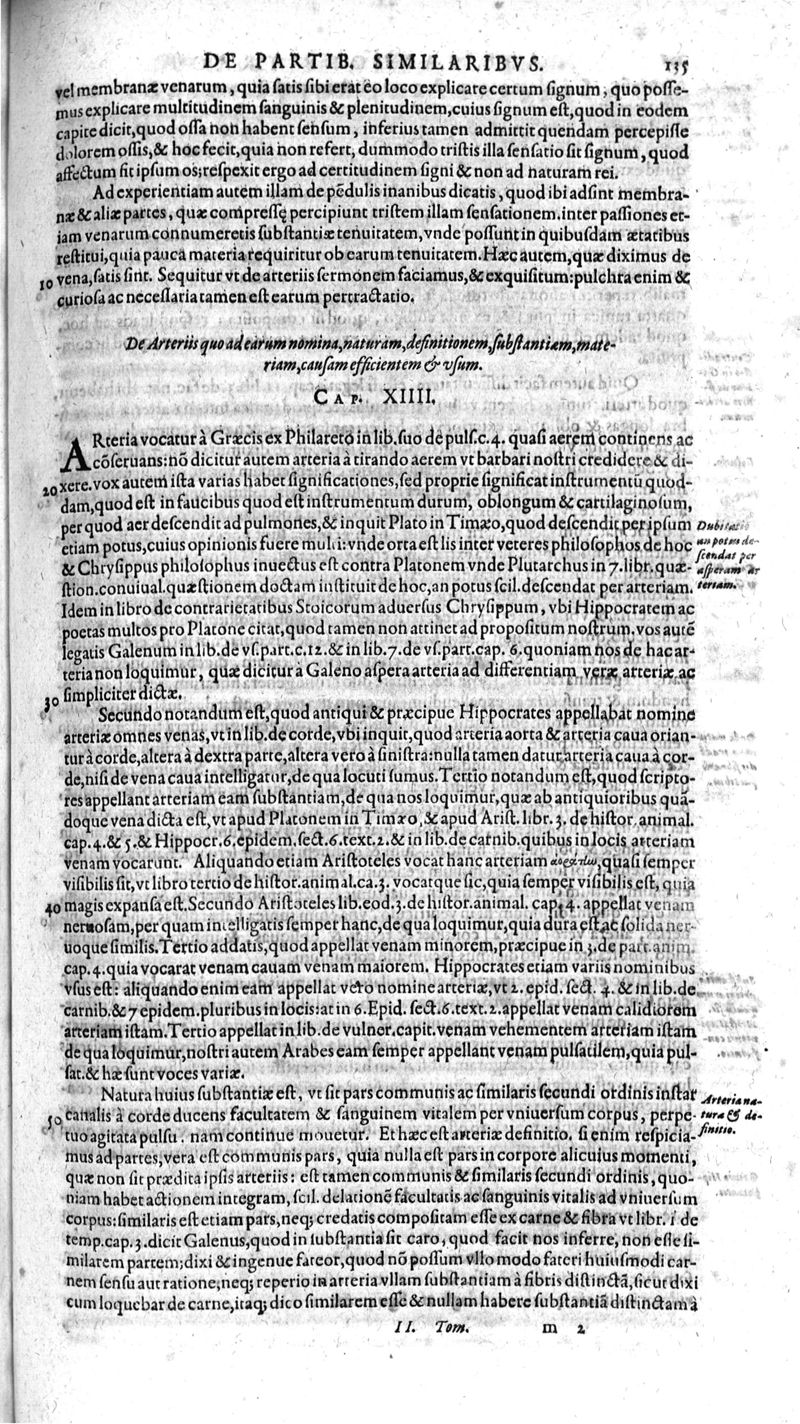 DE PARTIB. SIMILARIBVS. 135
vel membranæ venarum, quia satis sibi erat eo loco explicare certum signum, quo posse-
mus explicare multitudinem sanguinis & plenitudinem, cuius signum est, quod in eodem
capite dicit, quod ossa non habent sensum, inferius tamen admittit quendam percepisse
dolorem ossis, & hoc fecit, quia non refert, dummodo tristis illa sensatio sit signum, quod
affectum sit ipsum os; respexit ergo ad certitudinem signi & non ad naturam rei.
Ad experientiam autem illam de pēdulis inanibus dicatis, quod ibi adsint membra-
næ & aliæ partes, quæ compressę percipiunt tristem illam sensationem. inter passiones et-
iam venarum connumeretis substantiæ tenuitatem, vnde possunt in quibusdam ætatibus
restitui, quia pauca materia requiritur ob earum tenuitatem. Hæc autem, quæ diximus de
10 vena, satis sint. Sequitur vt de arteriis sermonem faciamus, & exquisitum: pulchra enim &
curiosa ac necessaria tamen est earum pertractatio.
De Arteriis quo ad earum nomina, naturam, definitionem, substantiam, mate-
riam, causam efficientem & vsum.
CAP. XIIII.
ARteria vocatur à Græcis ex Philareto in lib. suo de puls. c. 4. quasi aerem continens ac
cōseruans: nō dicitur autem arteria à tirando aerem vt barbari nostri credidere & di-
20 xere. vox autem ista varias habet significationes, sed proprie significat instrumentū quod-
dam, quod est in faucibus quod est instrumentum durum, oblongum & cartilaginosum,
per quod aer descendit ad pulmones, & inquit Plato in Timæo, quod descendit per ipsum
etiam potus, cuius opinionis fuere multi: vnde orta est lis inter veteres philosophos de hoc
& Chrysippus philosophus inuectus est contra Platonem vnde Plutarchus in 7. libr. quæ-
stion. conuiual. quæstionem doctam instituit de hoc, an potus scil. descendat per arteriam.
Idem in libro de contrarietatibus Stoicorum aduersus Chrysippum, vbi Hippocratem ac
poetas multos pro Platone citat, quod tamen non attinet ad propositum nostrum. vos autē
legatis Galenum in lib. de vs. part. c. 12. & in lib. 7. de vs. part. cap. 6. quoniam nos de hac ar-
teria non loquimur, quæ dicitur à Galeno aspera arteria ad differentiam veræ arteriæ ac
30 simpliciter dictæ.
Dubitatio
an potus de-
scendat per
asperam ar
teriam.
Secundo notandum est, quod antiqui & præcipue Hippocrates appellabat nomine
arteriæ omnes venas, vt in lib. de corde, vbi inquit, quod arteria aorta & arteria caua orian-
tur à corde, altera à dextra parte, altera vero à sinistra: nulla tamen datur arteria caua à cor-
de, nisi de vena caua intelligatur, de qua locuti sumus. Tertio notandum est, quod scripto-
res appellant arteriam eam substantiam, de qua nos loquimur, quæ ab antiquioribus quā-
doque vena dicta est, vt apud Platonem in Timæo, & apud Arist. libr. 3. de histor. animal.
cap. 4. & 5. & Hippocr. 6. epidem. sect. 6. text. 2. & in lib. de carnib. quibus in locis arteriam
venam vocarunt. Aliquando etiam Aristoteles vocat hanc arteriam , quasi semper
visibilis sit, vt libro tertio de histor. animal. ca. 3. vocatque sic, quia semper visibilis est, quia
40 magis expansa est. Secundo Aristoteles lib. eod. 3. de histor. animal. cap. 4. appellat venam
neruosam, per quam intelligatis semper hanc, de qua loquimur, quia dura est ac solida ner-
uoque similis. Tertio addatis, quod appellat venam minorem, præcipue in 3. de part. anim.
cap. 4. quia vocarat venam cauam venam maiorem. Hippocrates etiam variis nominibus
vsus est: aliquando enim eam appellat vero nomine arteriæ, vt 2. epid. sect. 4. & in lib. de
carnib. & 7 epidem. pluribus in locis: at in 6. Epid. sect. 6. text. 2. appellat venam calidiorem
arteriam istam. Tertio appellat in lib. de vulner. capit. venam vehementem arteriam istam
de qua loquimur, nostri autem Arabes eam semper appellant venam pulsatilem, quia pul-
sat. & hæ sunt voces variæ.
Natura huius substantiæ est, vt sit pars communis ac similaris secundi ordinis instar
50 canalis à corde ducens facultatem & sanguinem vitalem per vniuersum corpus, perpe-
tuo agitata pulsu. nam continue mouetur. Et hæc est arteriæ definitio. si enim respicia-
mus ad partes, vera est communis pars, quia nulla est pars in corpore alicuius momenti,
quæ non sit prædita ipsis arteriis: est tamen communis & similaris secundi ordinis, quo-
niam habet actionem integram, scil. delationē facultatis ac sanguinis vitalis ad vniuersum
corpus: similaris est etiam pars, neq; credatis compositam esse ex carne & fibra vt libr. 1 de
temp. cap. 3. dicit Galenus, quod in substantia sit caro, quod facit nos inferre, non esse si-
milarem partem; dixi & ingenue fateor, quod nō possum vllo modo fateri huiusmodi car-
nem sensu aut ratione, neq; reperio in arteria vllam substantiam à fibris distinctā, sicut dixi
cum loquebar de carne, itaq; dico similarem esse & nullam habere substantiā distinctam à
Arteriæ na-
tura & de-
finitio.
II. Tom. m 2